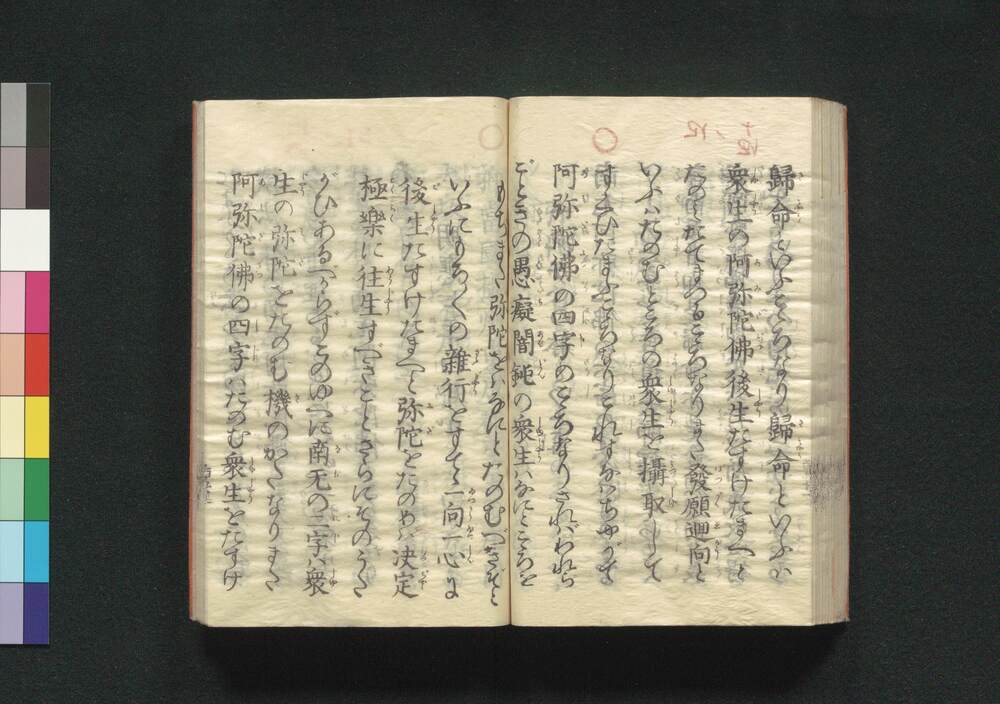 歸命といふこゝろなり歸命といふハ
衆生の阿弥陀佛後生たすけたまへと
たのミたてまつるこゝろなりまた發願迴向と
いふハたのむところの衆生を攝取して
すくひたまふこゝろなりこれすなハちやがて
阿弥陀佛の四字のこゝろなりされバわれら
ごときの愚癡闇鈍の衆生ハなにとこゝろを
もちまた弥陀をバなにとたのむべきぞと
いふにもろ〳〵の雜行をすてゝ一向一心に
後生たすけたまへと弥陀をたのめバ决定
極樂に往生すべきことさらにそのうた
がひあるべからずこのゆへに南无の二字ハ衆
生の弥陀をたのむ機のかたなりまた
阿弥陀佛の四字ハたのむ衆生をたすけ